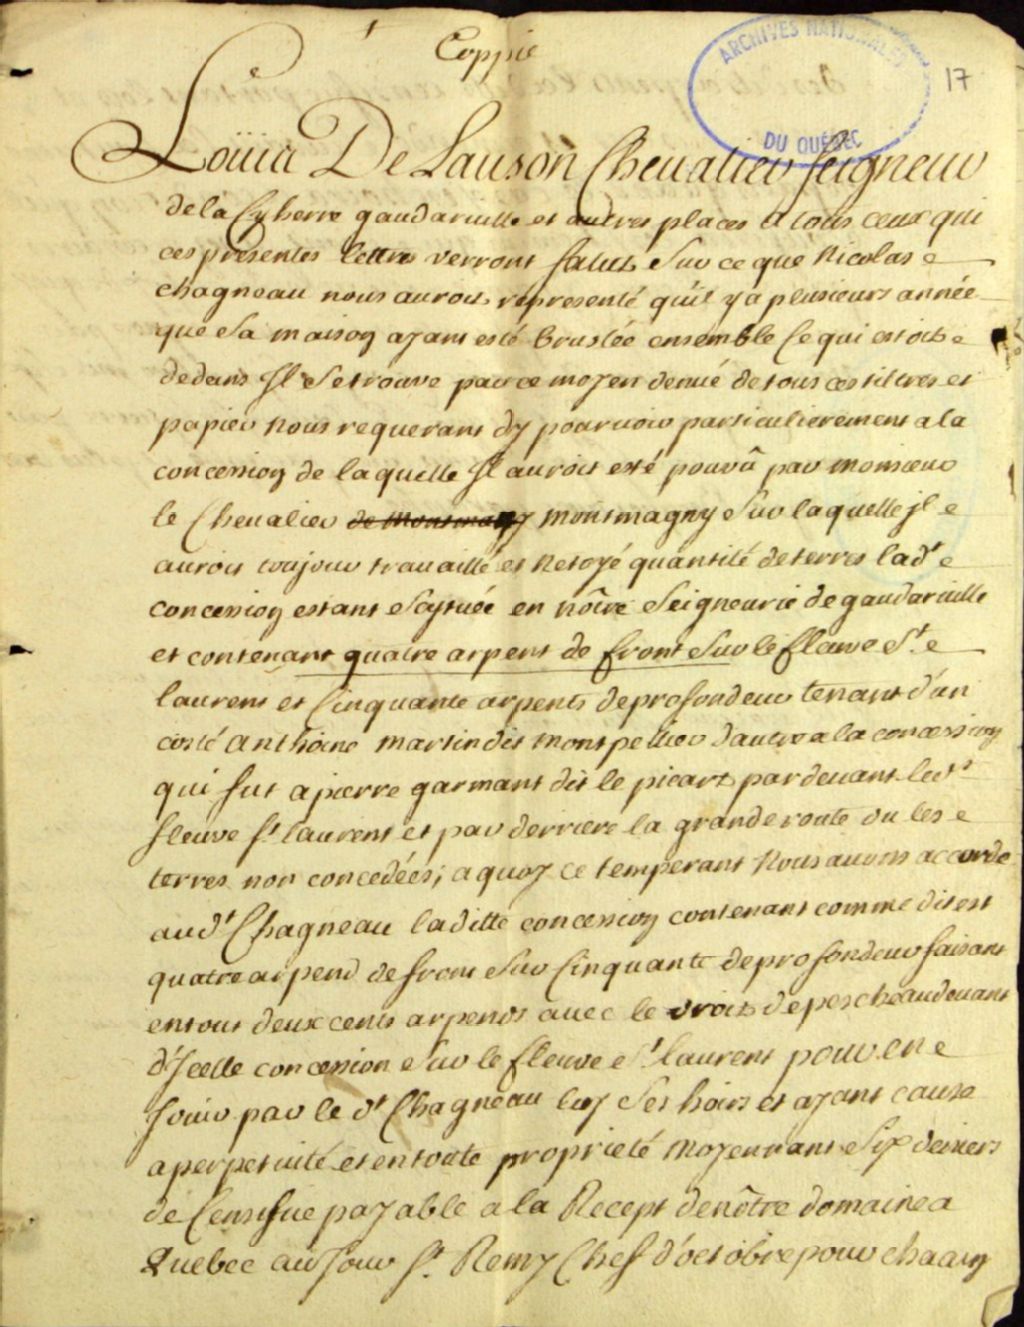 Coppie
ARCHIVES NATIONALES
DU QUÉBEC
17
Loüia De Lauson Cheualier seigneur
de la Cytherre gaudaruille et autres places a tous ceux qui
ces presentes lettres verront salut Sur ce que Nicolas
chagneau nous auroit representé qu'il y a plusieurs année
que sa maison ayant esté bruslée ensemble ce qui estoit
dedans Il se trouve par ce moyen denué de tous ces tiltres et
papier nous requerant d'y pouruoir particulierement a la
concession de laquelle Il auroit esté pouvû par monsieur
le Cheualier de Montmagny montmagny sur laquelle jl
auroit toujour trauaillé et netoyé quantité de terres lad.t
concession estant scytuée en nôtre Seigneurie de gaudaruille
et contenant quatre arpent de front sur le fleuve S.t
laurent et Cinquante arpents de profondeur tenant d'un
costé anthoine martin dit montpellier d'autre a la concession
qui fut a pierre garmant dit le picart par deuant led.t
fleuve S.t laurent et par derriere la grande route ou les
terres non concedées; a quoy ce temperant Nous auons accorde
aud.t Chagneau laditte concession contenant comme dit est
quatre arpend de front sur Cinquante de profondeur faisant
entout deux cents arpents auec le droit de pesche au deuant
d'Jcelle concession sur le fleuve S.t laurent pour en
Jouir par le d.t Chagneau luy ses hoirs et ayant cause
a perpetuité et en toute proprieté moyennant Six deniers
de Censsiue payable a la Recept de nôtre domaine a
Quebec au Jour S.t Remy Chef d'octobre pour chacun